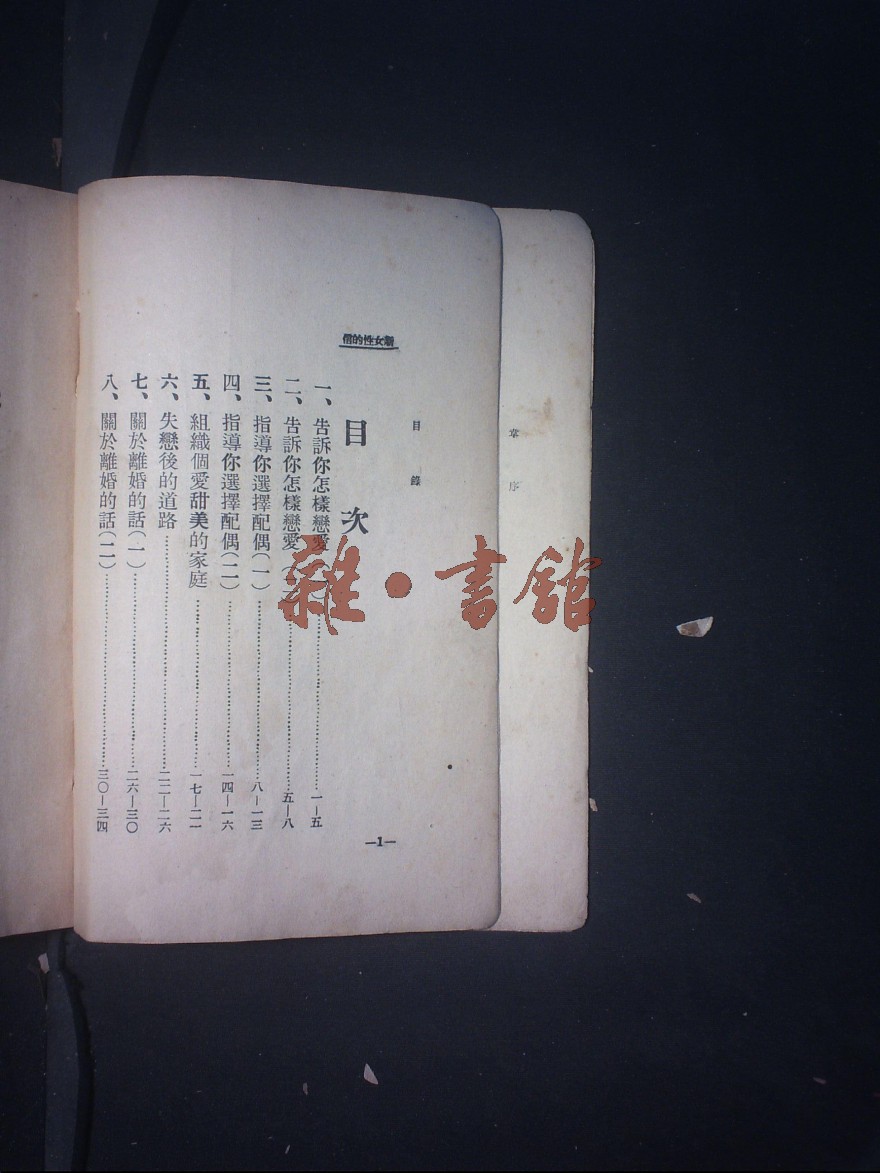 章序
目錄
信的性女
目次
一、告訴你怎樣戀愛(一)……一—五
二、告訴你怎樣戀愛(二)……五—八
三、指導你選擇配偶(一)……八—一三
四、指導你選擇配偶(二)……一四—一六
五、組織個愛甜美的家庭……一七—二一
六、失戀後的道路……二二—二六
七、關於離婚的話(一)……二六—三〇
八、關於離婚的話(二)……三〇—三四
—1—
雜·書館